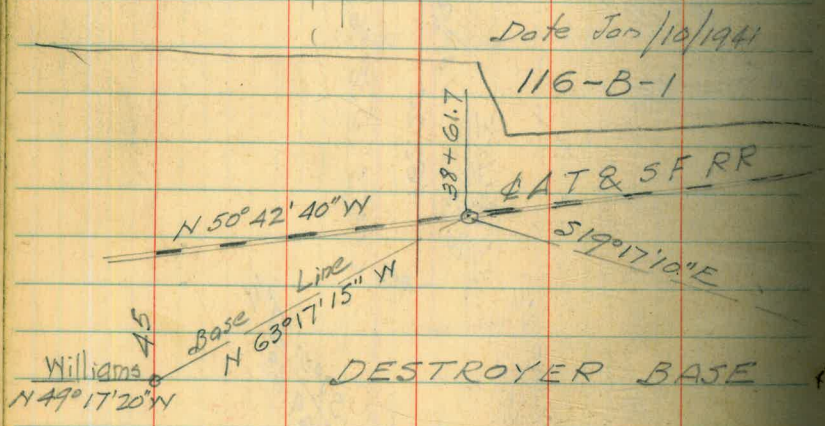 Date Jan/10/1941
116-B-1
38+61.7
℄ A T & S F RR
N 50° 42' 40" W
S 19° 17' 10" E
Base Line
N 63° 17' 15" W
45
Williams
N 49° 17' 20" W
DESTROYER BASE